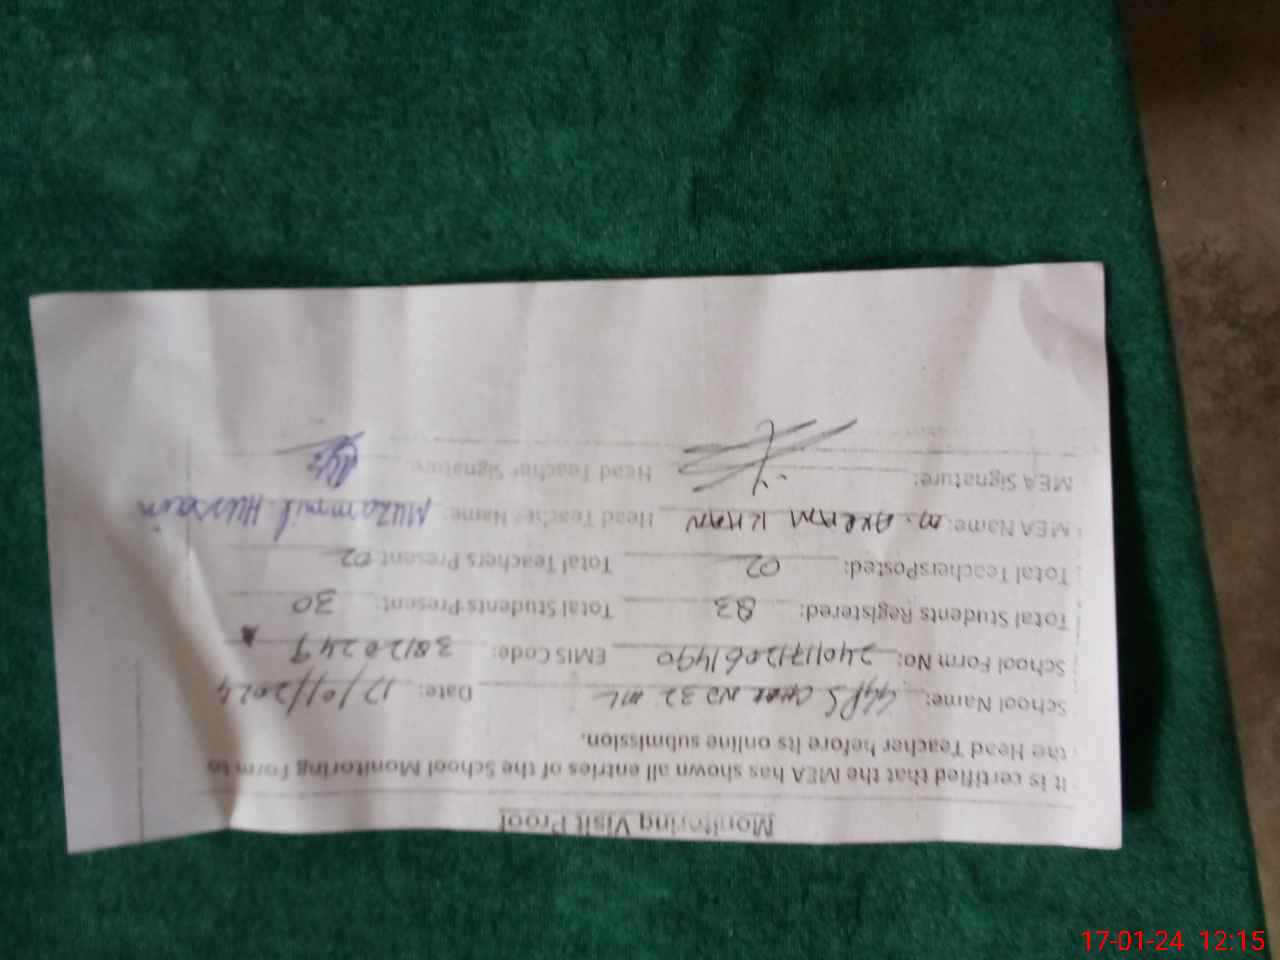 Monitoring Visit Proof
It is certified that the MEA has shown all entries of the School Monitoring Form to
the Head Teacher before its online submission.
School Name: GMPS CHAK NO 32 ML Date: 17/01/2024
School Form No: 24011712061490 EMIS Code: 38120249
Total Students Registered: 83 Total Students Present: 30
Total TeachersPosted: 02 Total Teachers Present: 02
MEA Name: M. AKRAM KHAN Head Teacher Name: Muzammil Hussain
MEA Signature: Head Teacher Signature:
17-01-24 12:15